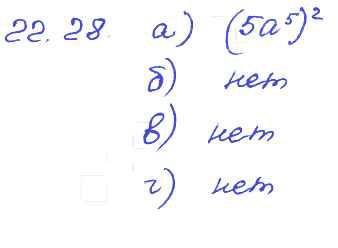 22.28. а) (5a⁵)²
б) нет
в) нет
г) нет